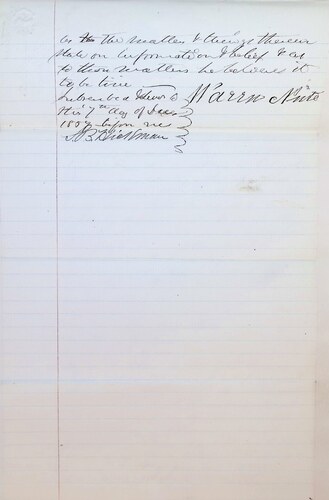 as to the matters & things therein
state on information & belief & as
to those matters he believes it
to be true
Subscribed & Sworn to
this 7th day of
1859 before me
Warren